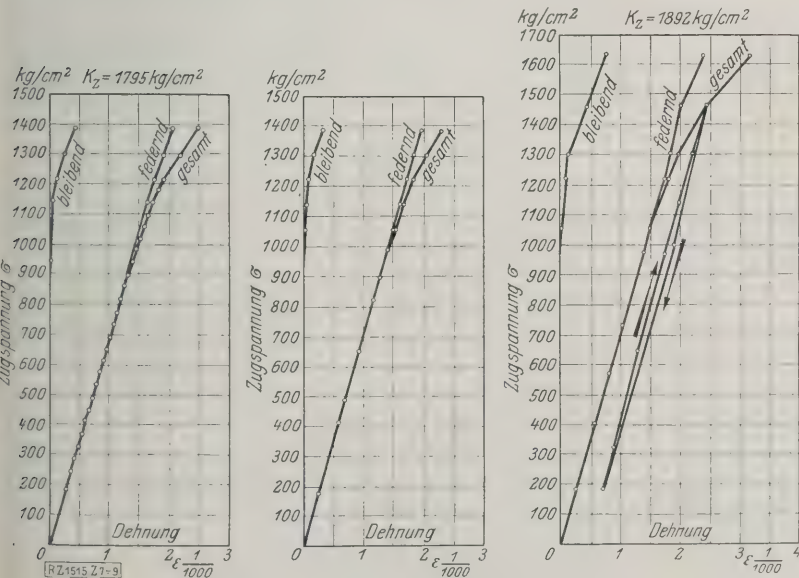 kg/cm² K_z = 1795 kg/cm²
1500
1400
1300
1200
1100
1000
900
800
700
600
500
400
300
200
100
0 1 2 3
Zugspannung σ
bleibend
federnd
gesamt
Dehnung
ε 1/1000
RZ1515 Z7-9
kg/cm²
1500
1400
1300
1200
1100
1000
900
800
700
600
500
400
300
200
100
0 1 2 3
Zugspannung σ
bleibend
federnd
gesamt
Dehnung
ε 1/1000
kg/cm² K_z = 1892 kg/cm²
1700
1600
1500
1400
1300
1200
1100
1000
900
800
700
600
500
400
300
200
100
0 1 2 3
Zugspannung σ
bleibend
federnd
gesamt
Dehnung
ε 1/1000